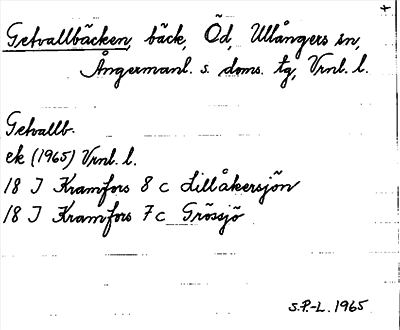 Getvallbäcken, bäck, Öd, Ullångers sn,
Ångermanl. s. doms. tg, Vrnl. l.
Getvallb.
ek (1965) Vrnl. l.
18 J Kramfors 8 c Lillåkersjön
18 J Kramfors 7 c Grössjö
S.P.-L. 1965